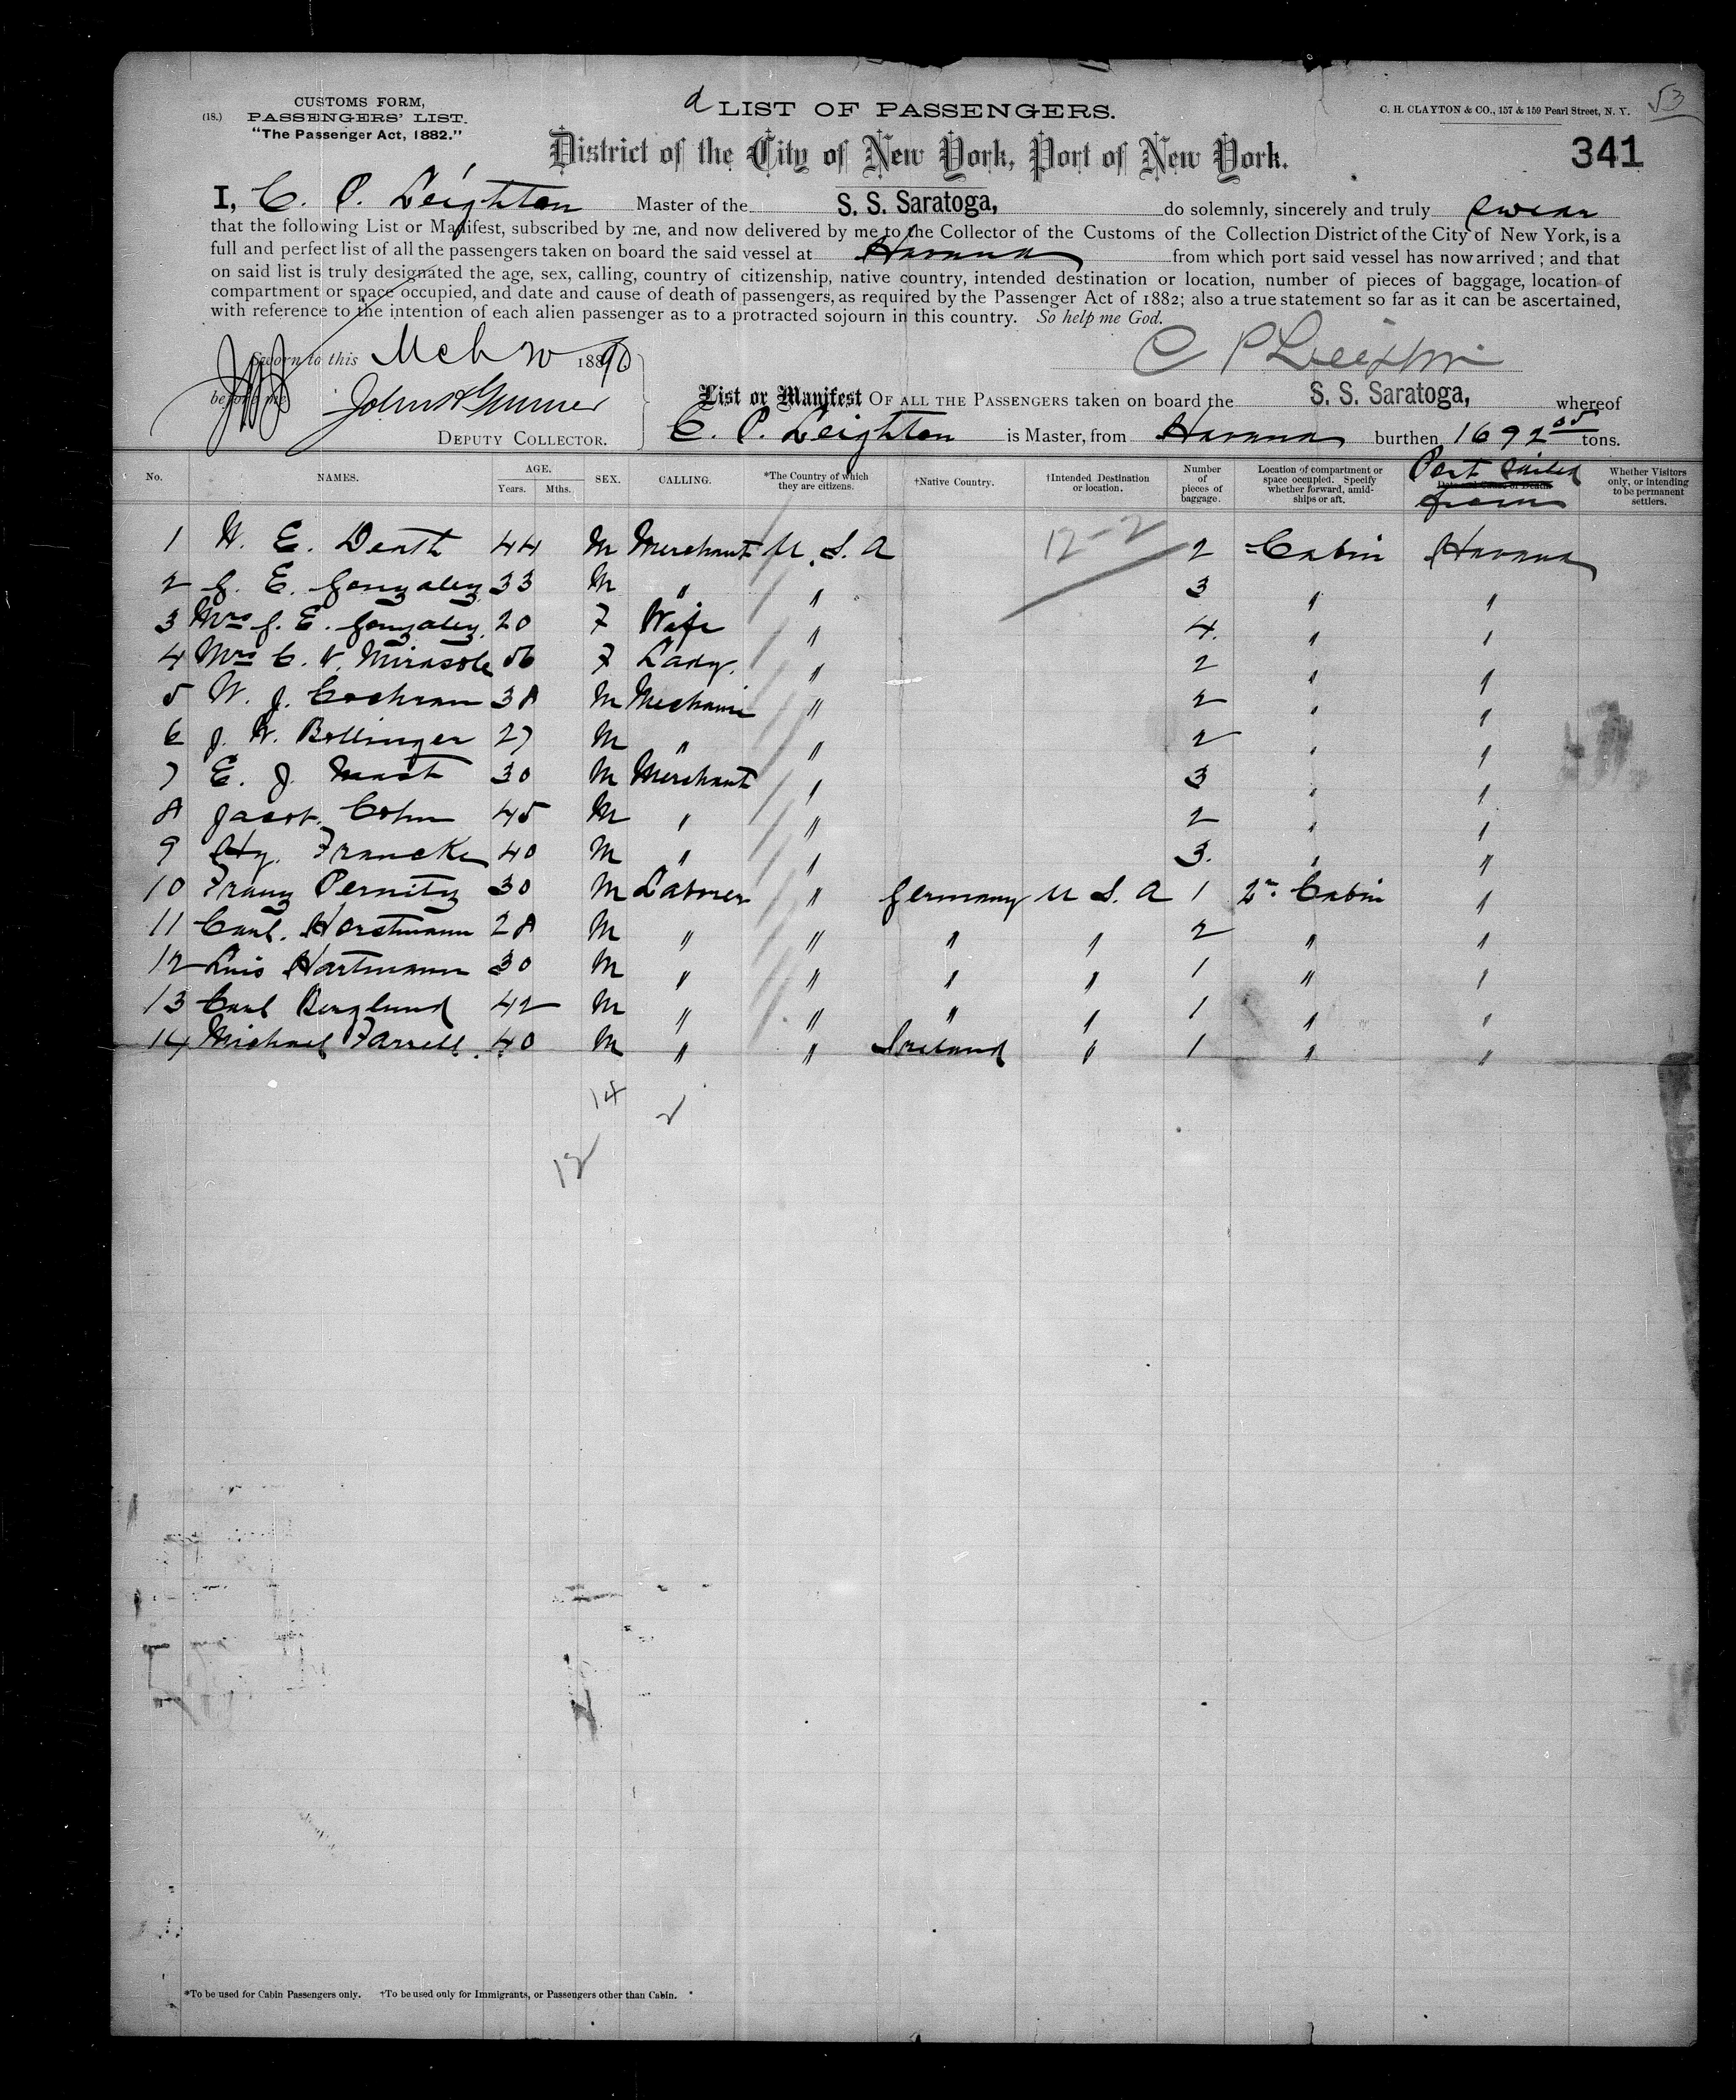 CUSTOMS FORM,
(18.) PASSENGERS' LIST.
"The Passenger Act, 1882."
LIST OF PASSENGERS.
C. H. CLAYTON & CO., 157 & 159 Pearl Street, N. Y.
53
District of the City of New York, Port of New York.
341
I, C. P. Leighton Master of the S. S. Saratoga, do solemnly, sincerely and truly swear
that the following List or Manifest, subscribed by me, and now delivered by me to the Collector of the Customs of the Collection District of the City of New York, is a
full and perfect list of all the passengers taken on board the said vessel at Havana from which port said vessel has now arrived; and that
on said list is truly designated the age, sex, calling, country of citizenship, native country, intended destination or location, number of pieces of baggage, location of
compartment or space occupied, and date and cause of death of passengers, as required by the Passenger Act of 1882; also a true statement so far as it can be ascertained,
with reference to the intention of each alien passenger as to a protracted sojourn in this country. So help me God.
Sworn to this Mch 20 1890
C P Leighton
before me
DEPUTY COLLECTOR.
List or Manifest OF ALL THE PASSENGERS taken on board the S. S. Saratoga, whereof
C. P. Leighton is Master, from Havana burthen 1692 05 tons.
No. NAMES. AGE. Years. Mths. SEX. CALLING. *The Country of which they are citizens. †Native Country. †Intended Destination or location. Number of pieces of baggage. Location of compartment or space occupied. Specify whether forward, amidships or aft. Date and Cause of Death Port Sailed from Whether Visitors only, or intending to be permanent settlers.
12-2
1 W. E. Death 44 M Merchant U. S. A 2 Cabin Havana
2 J. E. Gonzalez 33 M " " 3 " "
3 Mrs J. E. Gonzalez 20 F Wife " 4 " "
4 Mrs C. V. Mirasole 56 F Lady " 2 " "
5 W. J. Cochran 38 M Mechanic " 2 " "
6 J. W. Bollinger 27 M " " 2 " "
7 E. J. Mast 30 M Merchant " 3 " "
8 Jacob Cohn 45 M " " 2 " "
9 Hy. Francke 40 M " " 3 " "
10 Franz Pernitz 30 M Laborer " Germany U S. A 1 2n Cabin "
11 Carl Horstmann 28 M " " " " 2 " "
12 Luis Hartmann 30 M " " " " 1 " "
13 Carl Berglund 42 M " " " " 1 " "
14 Michael Farrell 40 M " " Ireland " 1 " "
14 2
12
*To be used for Cabin Passengers only. †To be used only for Immigrants, or Passengers other than Cabin.